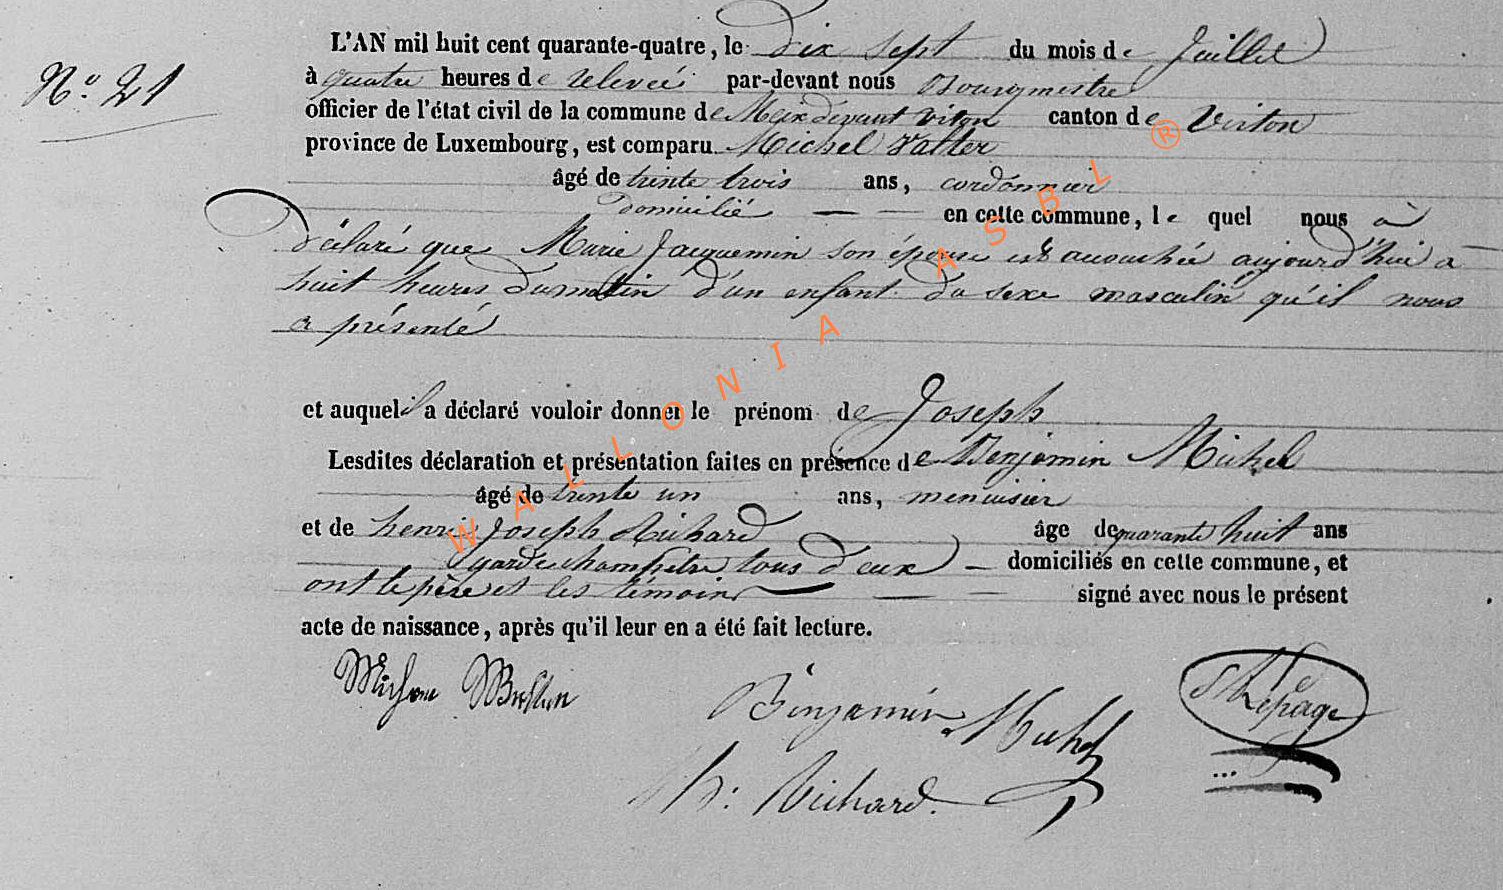 L'AN mil huit cent quarante-quatre, le dix sept du mois de Juillet
N.º 21
à quatre heures de relevée par-devant nous Bourgmestre
officier de l'état civil de la commune de Meix devant virton canton de Virton
province de Luxembourg, est comparu Michel Valter
âgé de trente trois ans, cordonnier
domicilié — — en cette commune, le quel nous à
déclaré que Marie Jacquemin son épouse est accouchée aujourd'hui a
huit heures du matin d'un enfant du sexe masculin qu'il nous
a présenté
et auquel il a déclaré vouloir donner le prénom de Joseph
Lesdites déclaration et présentation faites en présence de Benjamin Michel
âgé de trente un ans, menuisier
et de henri Joseph Richard âge de quarante huit ans
garde champêtre tous deux — domiciliés en cette commune, et
ont le père et les témoins — — — signé avec nous le présent
acte de naissance, après qu'il leur en a été fait lecture.
Benjamin Michel
Lepage
h: Richard.
WALLONIA ASBL ®